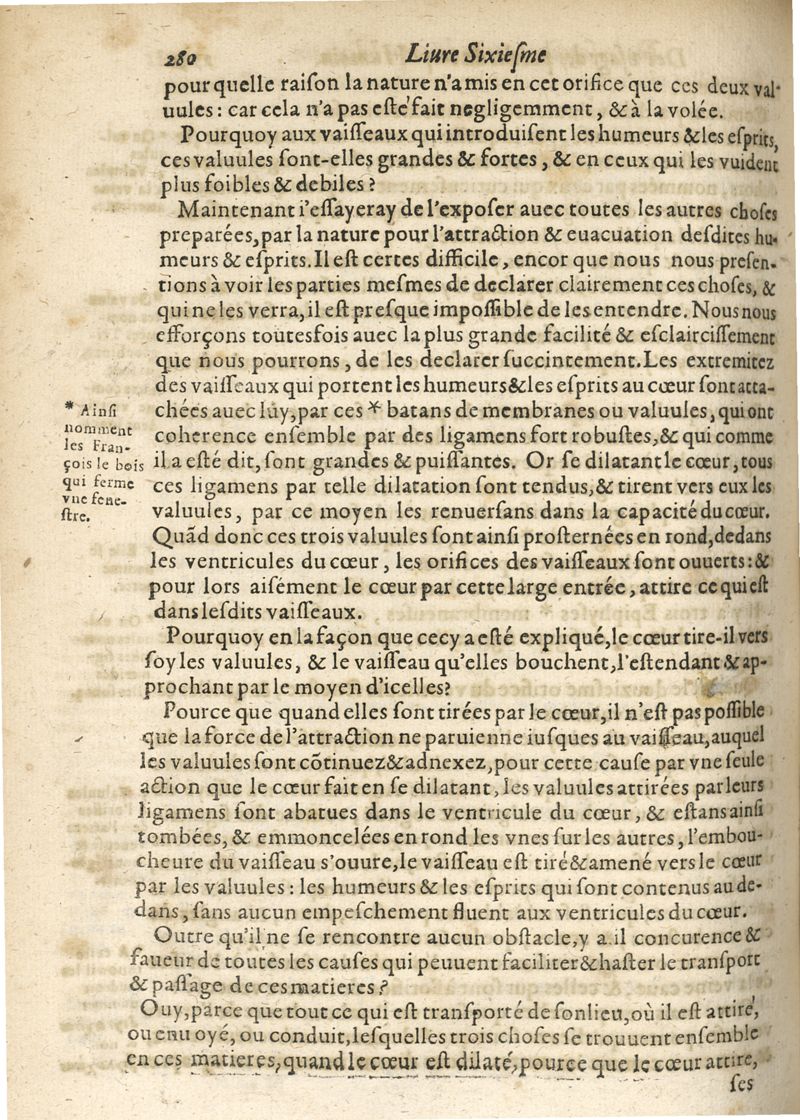 280 Liure Sixieſme
pour quelle raiſon la nature n'a mis en cet orifice que ces deux val-
uules : car cela n'a pas eſté fait negligemment, & à la volée.
Pourquoy aux vaiſſeaux qui introduiſent les humeurs & les eſprits,
ces valuules ſont-elles grandes & fortes, & en ceux qui les vuident
plus foibles & debiles ?
Maintenant i'eſſayeray de l'expoſer auec toutes les autres choſes
preparées, par la nature pour l'attraction & euacuation deſdites hu-
meurs & eſprits. Il eſt certes difficile, encor que nous nous preſen-
tions à voir les parties meſmes de declarer clairement ces choſes, &
qui ne les verra, il eſt preſque impoſſible de les entendre. Nous nous
efforçons toutesfois auec la plus grande facilité & eſclairciſſement
que nous pourrons, de les declarer ſuccintement. Les extremitez
des vaiſſeaux qui portent les humeurs & les eſprits au cœur ſont atta-
chées auec luy, par ces * batans de membranes ou valuules, qui ont
coherence enſemble par des ligamens fort robuſtes, & qui comme
il a eſté dit, ſont grandes & puiſſantes. Or ſe dilatant le cœur, tous
ces ligamens par telle dilatation ſont tendus, & tirent vers eux les
valuules, par ce moyen les renuerſans dans la capacité du cœur.
Quãd donc ces trois valuules ſont ainſi proſternées en rond, dedans
les ventricules du cœur, les orifices des vaiſſeaux ſont ouuerts : &
pour lors aiſément le cœur par cette large entrée, attire ce qui eſt
dans leſdits vaiſſeaux.
* Ainſi
nomment
les Fran-
çois le bois
qui ferme
vne fene-
ſtre.
Pourquoy en la façon que cecy a eſté expliqué, le cœur tire-il vers
ſoy les valuules, & le vaiſſeau qu'elles bouchent, l'eſtendant & ap-
prochant par le moyen d'icelles?
Pource que quand elles ſont tirées par le cœur, il n'eſt pas poſſible
que la force de l'attraction ne paruienne iuſques au vaiſſeau, auquel
les valuules ſont cõtinuez & adnexez, pour cette cauſe par vne ſeule
action que le cœur fait en ſe dilatant, les valuules attirées par leurs
ligamens ſont abatues dans le ventricule du cœur, & eſtans ainſi
tombées, & emmoncelées en rond les vnes ſur les autres, l'embou-
cheure du vaiſſeau s'ouure, le vaiſſeau eſt tiré & amené vers le cœur
par les valuules : les humeurs & les eſprits qui ſont contenus au de-
dans, ſans aucun empeſchement fluent aux ventricules du cœur.
Outre qu'il ne ſe rencontre aucun obſtacle, y a il concurence &
faueur de toutes les cauſes qui peuuent faciliter & haſter le tranſport
& paſſage de ces matieres ?
Ouy, parce que tout ce qui eſt tranſporté de ſon lieu, où il eſt attiré,
ou enuoyé, ou conduit, leſquelles trois choſes ſe trouuent enſemble
en ces matieres, quand le cœur eſt dilaté, pource que le cœur attire,
ſes